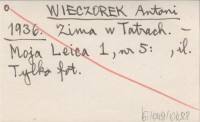 WIECZOREK Antoni
1936. Zima w Tatrach. -
Moja Leica 1, nr 5: , il.
Tylko fot.